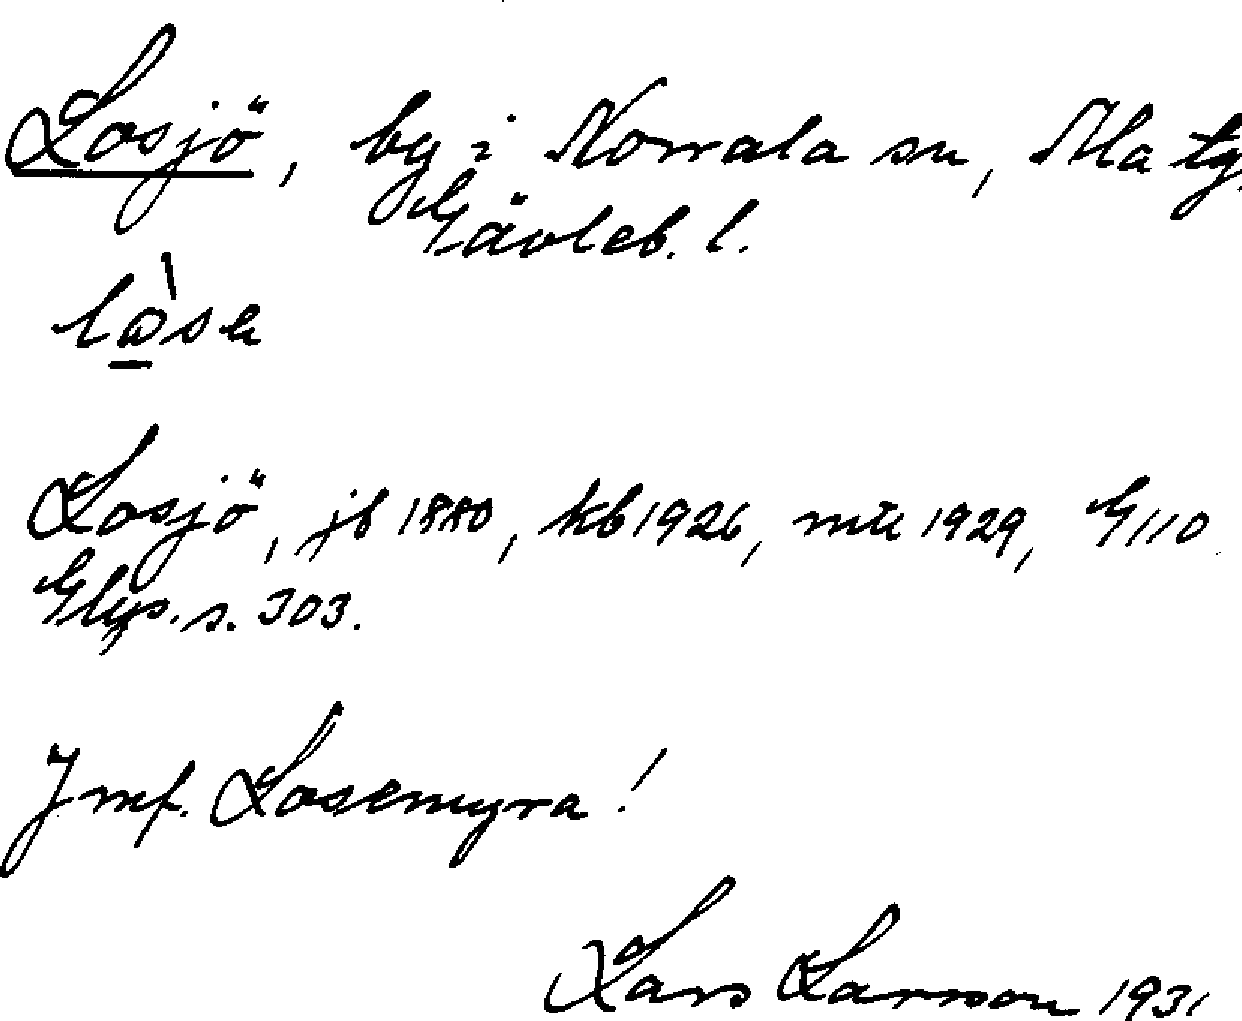 Losjö, by i Norrala sn, Ala tg.
Gävleb. l.
Losjö, jb 1880, kb 1926, mtl 1929, G 110
Glys. s. 303.
Jmf. Losemyra!
Lars Larsson 1931